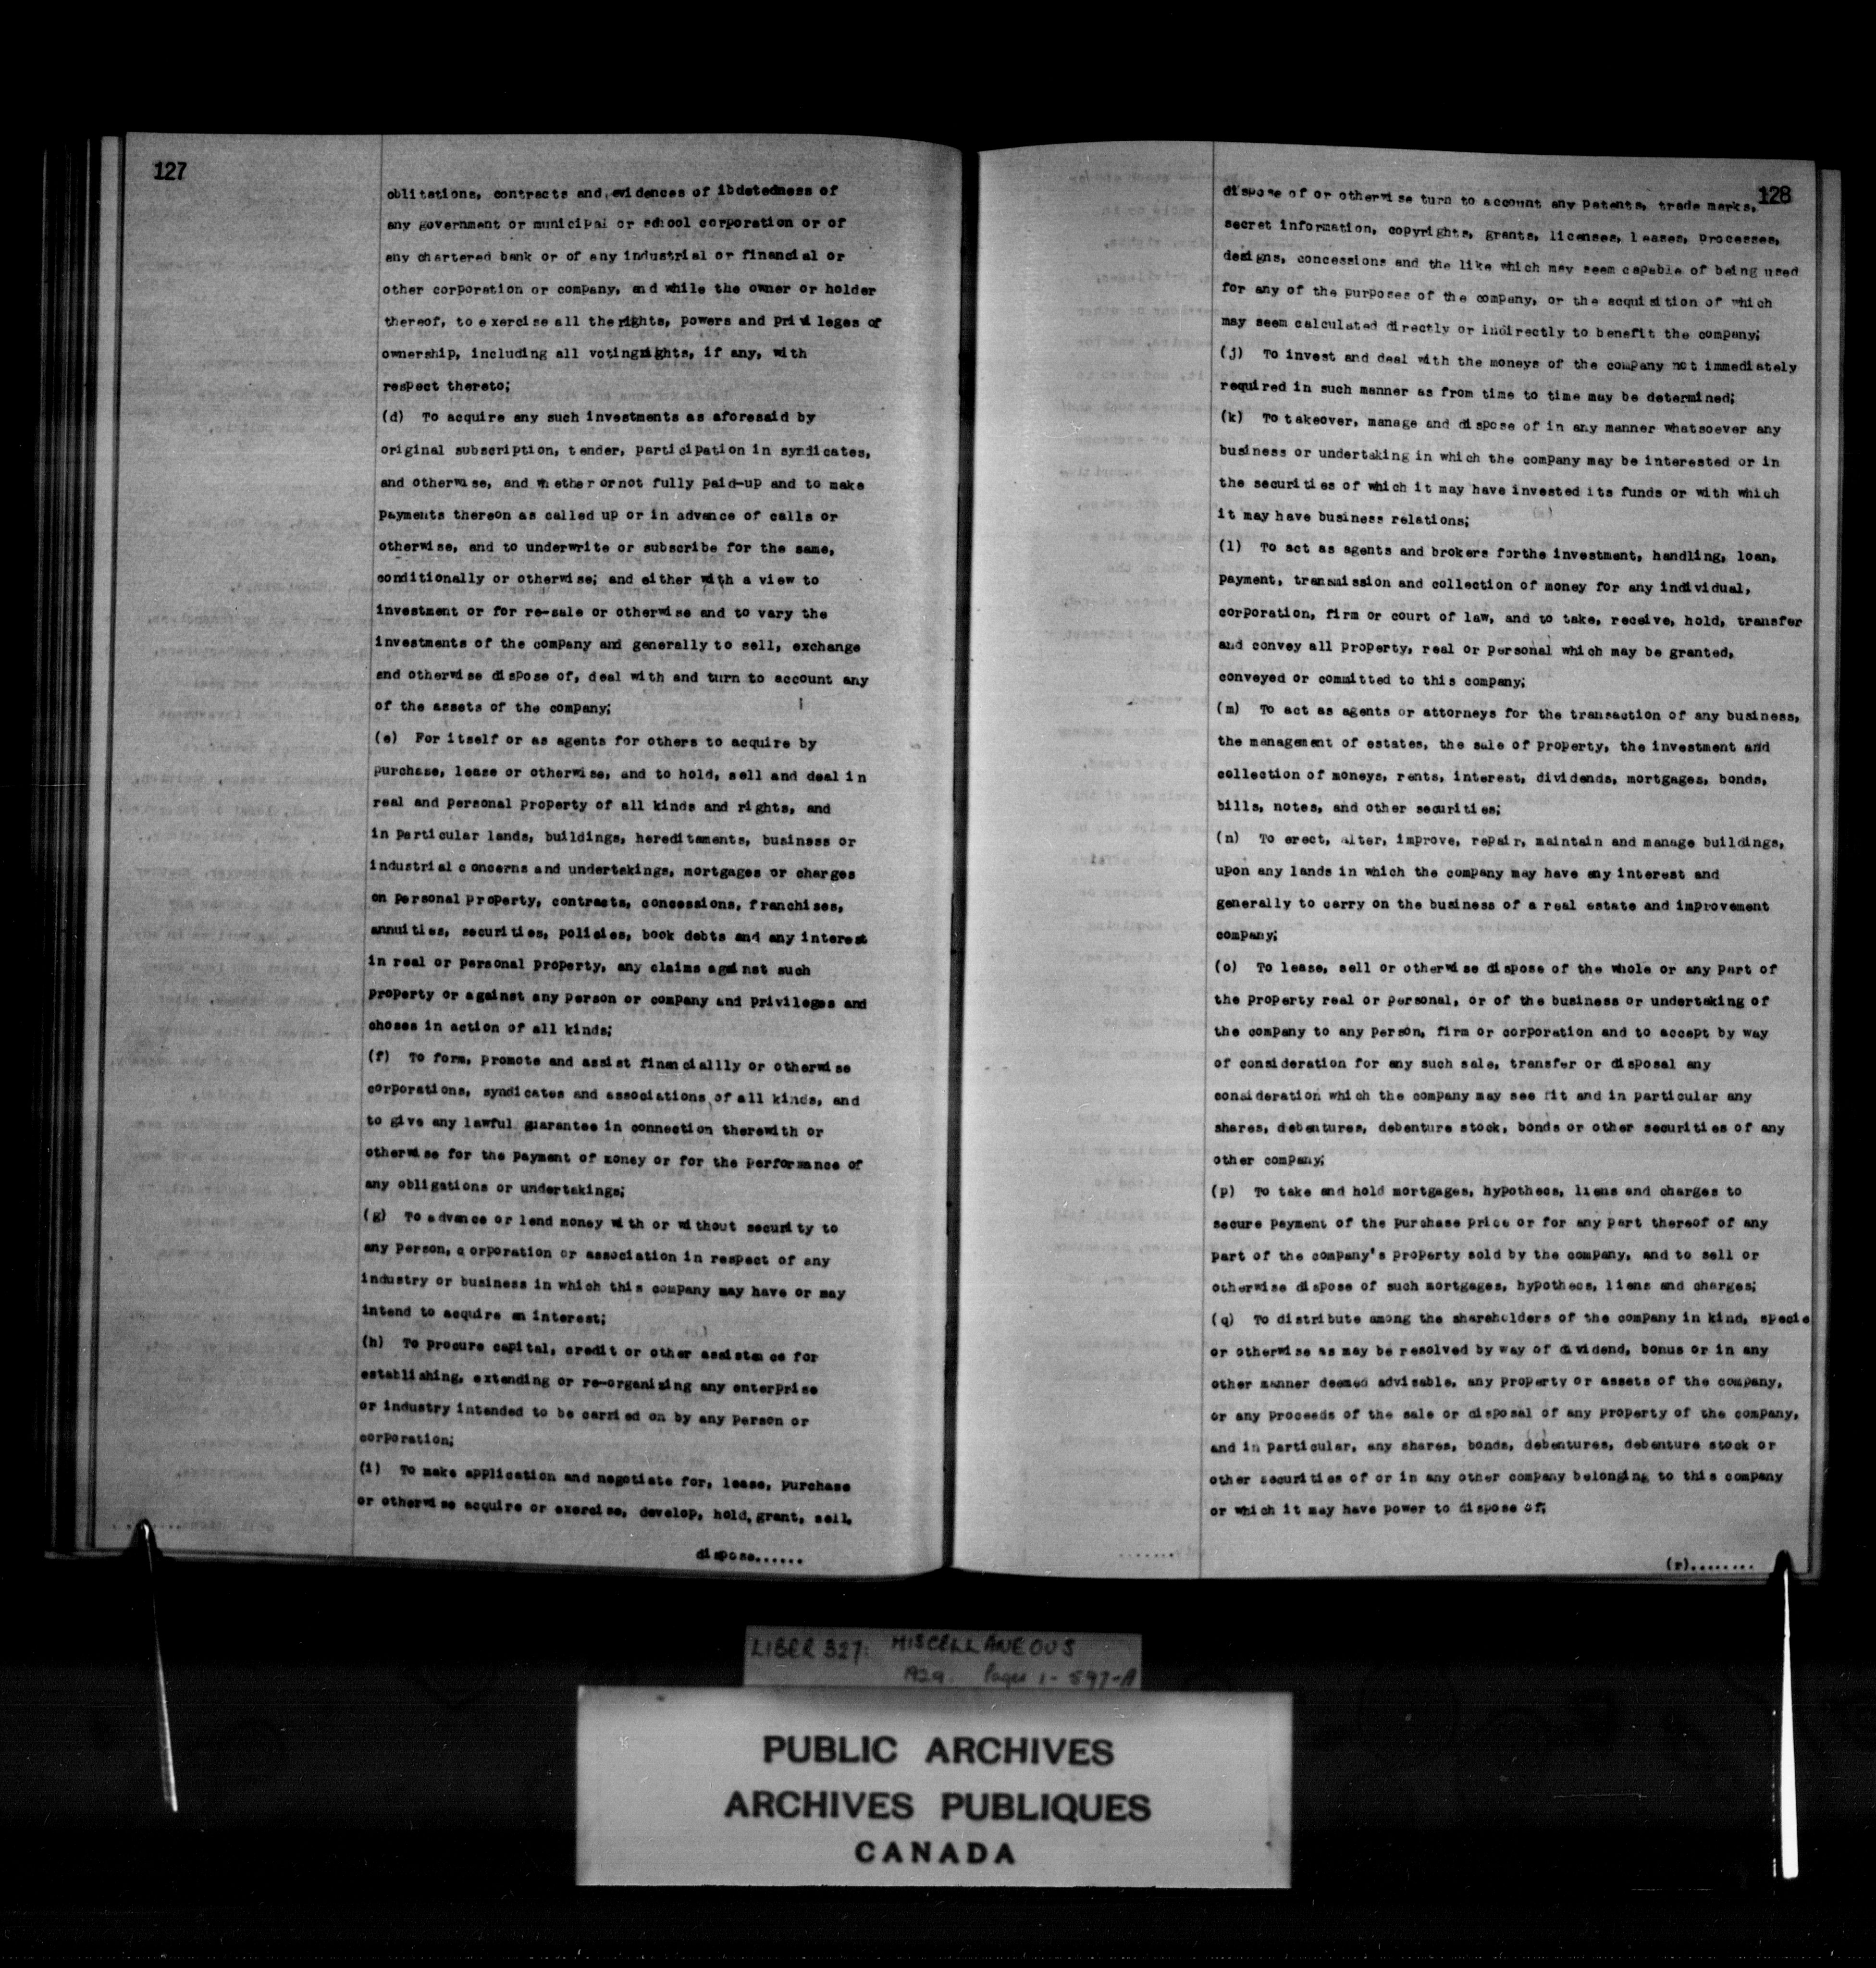 127
oblitations, contracts and evidences of ibdetedness of
any government or municipal or school corporation or of
any chartered bank or of any industrial or financial or
other corporation or company, and while the owner or holder
thereof, to exercise all therights, powers and privileges of
ownership, including all votingrights, if any, with
respect thereto;
(d) To acquire any such investments as aforesaid by
original subscription, tender, participation in syndicates,
and otherwise, and whether ornot fully paid-up and to make
payments thereon as called up or in advance of calls or
otherwise, and to underwrite or subscribe for the same,
conditionally or otherwise; and either with a view to
investment or for re-sale or otherwise and to vary the
investments of the company and generally to sell, exchange
and otherwise dispose of, deal with and turn to account any
of the assets of the company;
(e) For itself or as agents for others to acquire by
purchase, lease or otherwise, and to hold, sell and deal in
real and personal property of all kinds and rights, and
in particular lands, buildings, hereditaments, business or
industrial concerns and undertakings, mortgages or charges
on personal property, contracts, concessions, franchises,
annuities, securities, policies, book debts and any interest
in real or personal property, any claims against such
property or against any person or company and privileges and
choses in action of all kinds;
(f) To form, promote and assist financiallly or otherwise
corporations, syndicates and associations of all kinds, and
to give any lawful guarantee in connection therewith or
otherwise for the payment of money or for the performance of
any obligations or undertakings;
(g) To advance or lend money with or without security to
any person, corporation or association in respect of any
industry or business in which this company may have or may
intend to acquire an interest;
(h) To procure capital, credit or other assistance for
establishing, extending or re-organizing any enterprise
or industry intended to be carried on by any person or
corporation;
(i) To make application and negotiate for, lease, purchase
or otherwise acquire or exercise, develop, hold, grant, sell,
dispose......
128
dispose of or otherwise turn to account any patents, trade marks,
secret information, copyrights, grants, licenses, leases, processes,
designs, concessions and the like which may seem capable of being used
for any of the purposes of the company, or the acquisition of which
may seem calculated directly or indirectly to benefit the company;
(j) To invest and deal with the moneys of the company not immediately
required in such manner as from time to time may be determined;
(k) To takeover, manage and dispose of in any manner whatsoever any
business or undertaking in which the company may be interested or in
the securities of which it may have invested its funds or with which
it may have business relations;
(l) To act as agents and brokers forthe investment, handling, loan,
payment, transmission and collection of money for any individual,
corporation, firm or court of law, and to take, receive, hold, transfer
and convey all property, real or personal which may be granted,
conveyed or committed to this company;
(m) To act as agents or attorneys for the transaction of any business,
the management of estates, the sale of property, the investment and
collection of moneys, rents, interest, dividends, mortgages, bonds,
bills, notes, and other securities;
(n) To erect, alter, improve, repair, maintain and manage buildings,
upon any lands in which the company may have any interest and
generally to carry on the business of a real estate and improvement
company;
(o) To lease, sell or otherwise dispose of the whole or any part of
the property real or personal, or of the business or undertaking of
the company to any person, firm or corporation and to accept by way
of consideration for any such sale, transfer or disposal any
consideration which the company may see fit and in particular any
shares, debentures, debenture stock, bonds or other securities of any
other company;
(p) To take and hold mortgages, hypothecs, liens and charges to
secure payment of the purchase price or for any part thereof of any
part of the company's property sold by the company, and to sell or
otherwise dispose of such mortgages, hypothecs, liens and charges;
(q) To distribute among the shareholders of the company in kind, specie
or otherwise as may be resolved by way of dividend, bonus or in any
other manner deemed advisable, any property or assets of the company,
or any proceeds of the sale or disposal of any property of the company,
and in particular, any shares, bonds, debentures, debenture stock or
other securities of or in any other company belonging to this company
or which it may have power to dispose of;
(r)........
LIBER 327: MISCELLANEOUS
1929. Pages 1-597-A
PUBLIC ARCHIVES
ARCHIVES PUBLIQUES
CANADA